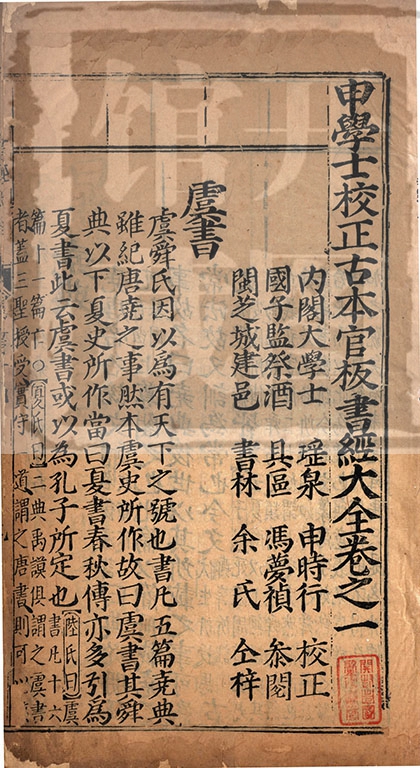 申學士校正古本官板書經大全卷之一
內閣大學士 瑤泉 申時行 校正
國子監祭酒 具區 馮夢禎 叅閱
閩芝城建邑 書林 余氏 仝梓
虞書
虞舜氏因以爲有天下之號也書凡五篇堯典
雖紀唐堯之事然本虞史所作故曰虞書其舜
典以下夏史所作當曰夏書春秋傳亦多引爲
夏書此云虞書或以為孔子所定也
陸氏曰虞
書凡十六
篇十一篇亡○夏氏曰二典禹謨俱謂之虞書
者蓋三聖授受實守一道謂之唐書則可以